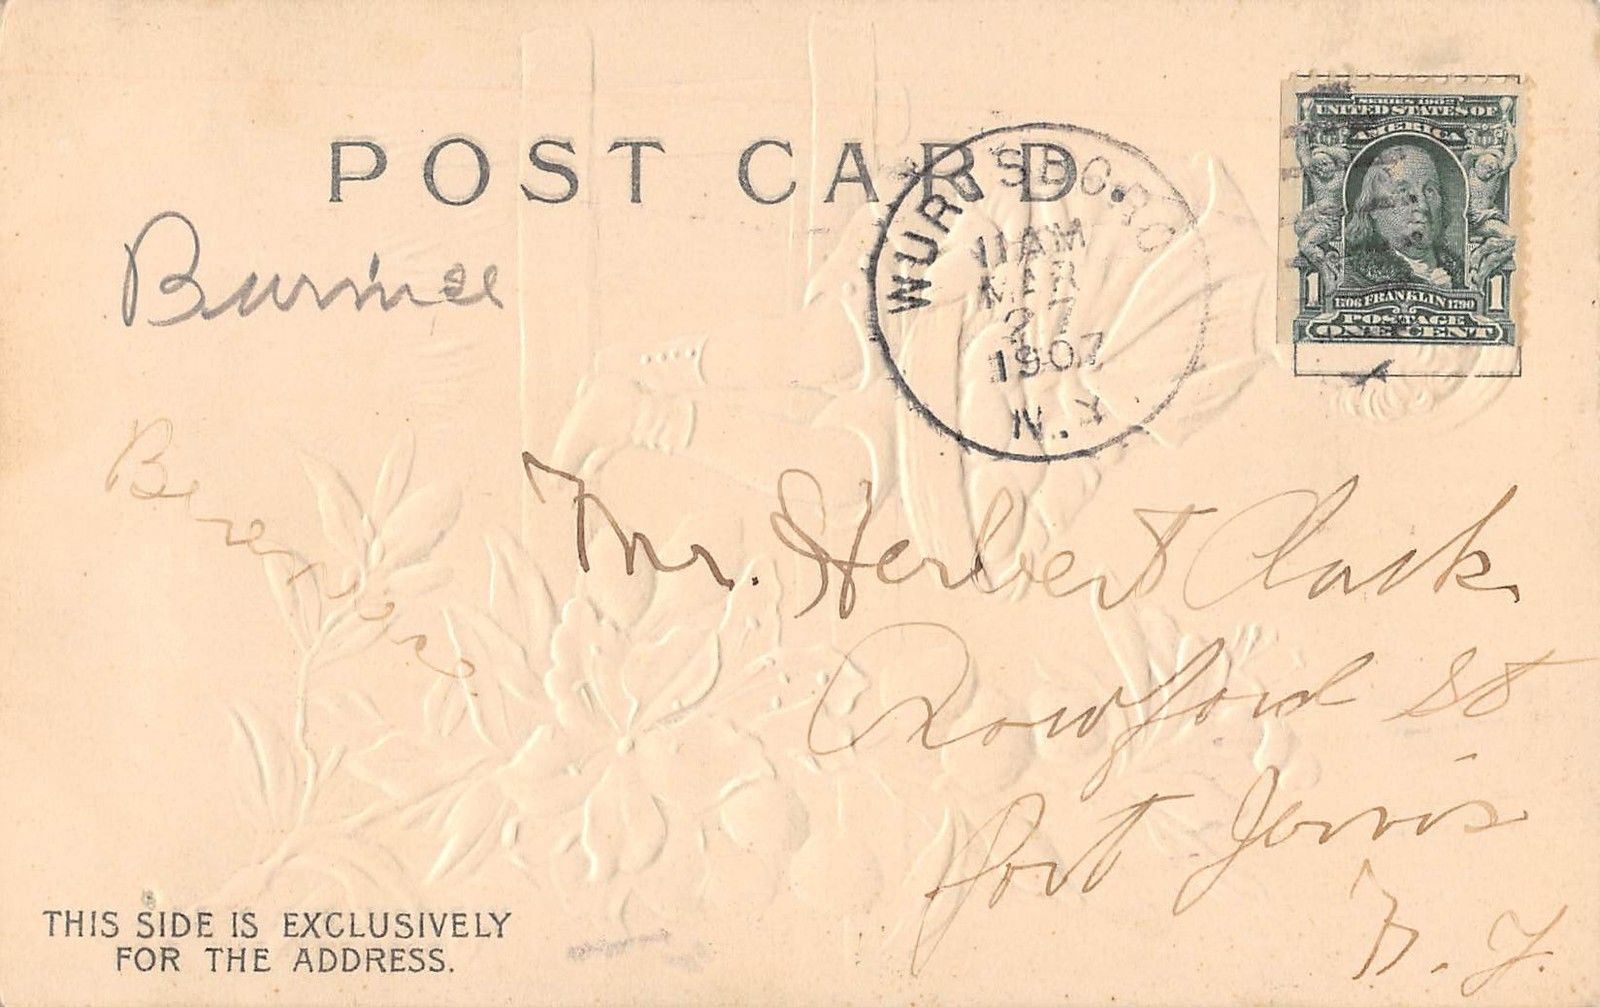 POST CARD
WURTSBORO
11 AM
MAR
27
1907
N.Y.
SERIES 1902
UNITED STATES OF
AMERICA
1 1706 FRANKLIN 1790 1
POSTAGE
ONE CENT
Burnice
Berenice
Mr. Herbert Clark
Crawford St
Port Jervis
N. Y.
THIS SIDE IS EXCLUSIVELY
FOR THE ADDRESS.